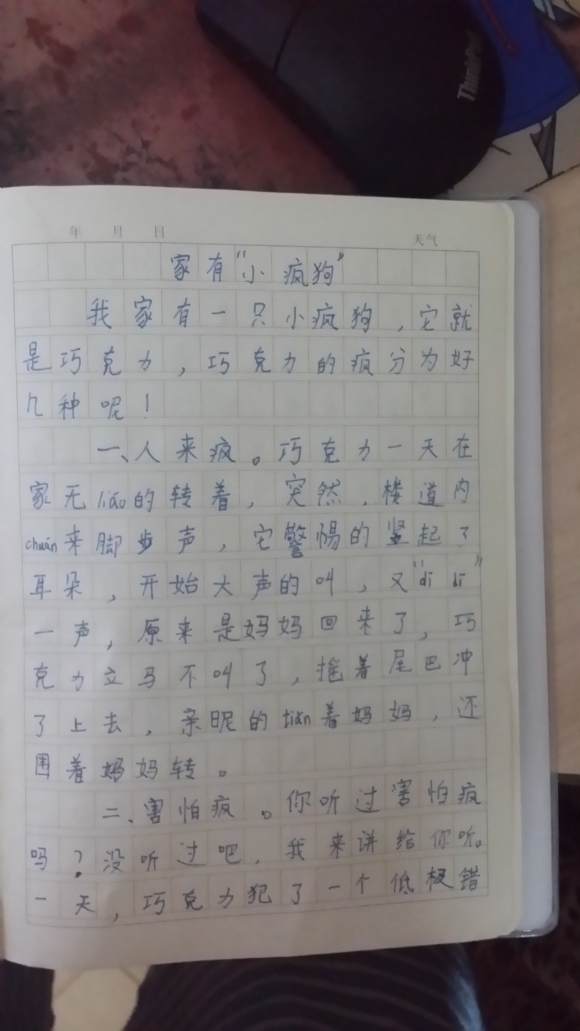 ThinkPad
年 月 日 天气
家有“小疯狗”
我家有一只小疯狗，它就
是巧克力，巧克力的疯分为好
几种呢！
一、人来疯。巧克力一天在
家无liáo的转着，突然，楼道内
chuán来脚步声，它警惕的竖起了
耳朵，开始大声的叫，又“dī dī”
一声，原来是妈妈回来了，巧
克力立马不叫了，摇着尾巴冲
了上去，亲昵的tiǎn着妈妈，还
围着妈妈转。
二、害怕疯。你听过害怕疯
吗？没听过吧，我来讲给你听。
一天，巧克力犯了一个低级错